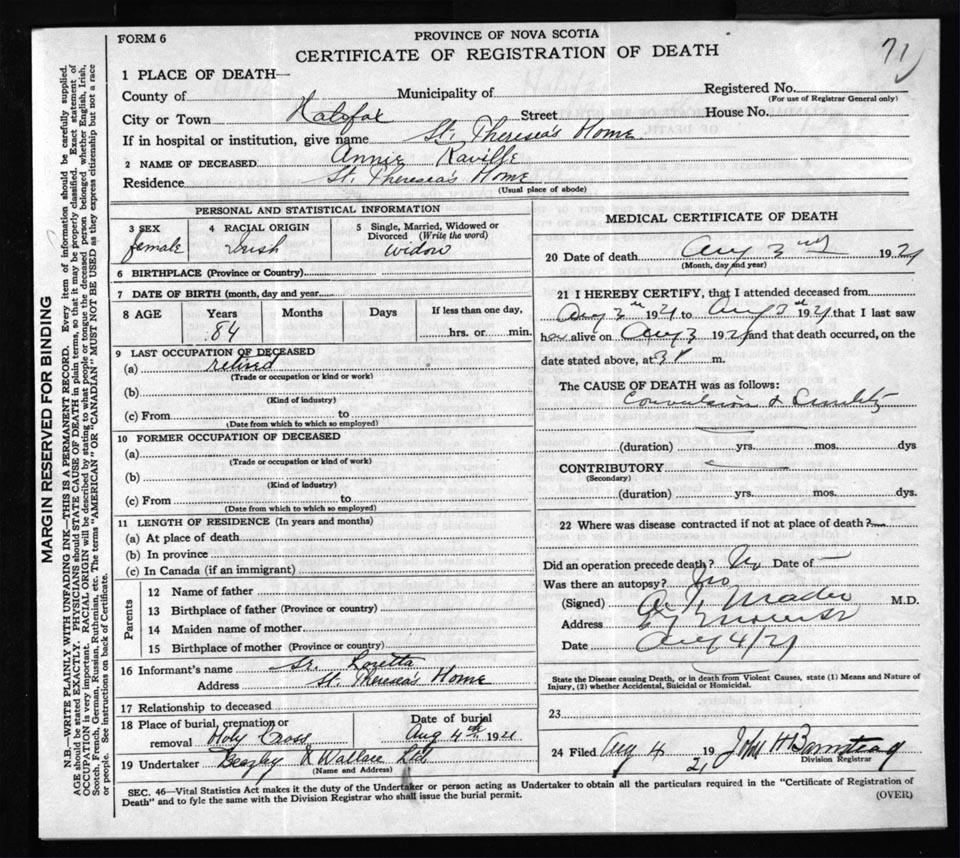 FORM 6
PROVINCE OF NOVA SCOTIA
CERTIFICATE OF REGISTRATION OF DEATH
71
1 PLACE OF DEATH—
County of
Municipality of
Registered No.
(For use of Registrar General only)
City or Town Halifax Street House No.
If in hospital or institution, give name St. Theresea's Home
2 NAME OF DECEASED Annie
Residence St. Theresea's Home
(Usual place of abode)
PERSONAL AND STATISTICAL INFORMATION
3 SEX female
4 RACIAL ORIGIN Irish
5 Single, Married, Widowed or Divorced (Write the word) widow
6 BIRTHPLACE (Province or Country)
7 DATE OF BIRTH (month, day and year)
8 AGE Years Months Days If less than one day,
84 hrs. or min.
9 LAST OCCUPATION OF DECEASED
(a) retired
(Trade or occupation or kind or work)
(b)
(Kind of industry)
(c) From to
(Date from which to which so employed)
10 FORMER OCCUPATION OF DECEASED
(a)
(Trade or occupation or kind of work)
(b)
(Kind of industry)
(c) From to
(Date from which to which so employed)
11 LENGTH OF RESIDENCE (In years and months)
(a) At place of death
(b) In province
(c) In Canada (if an immigrant)
Parents
12 Name of father
13 Birthplace of father (Province or country)
14 Maiden name of mother
15 Birthplace of mother (Province or country)
16 Informant's name Sr. Loretta
Address St. Theresea's Home
17 Relationship to deceased
18 Place of burial, cremation or removal Holy Cross
Date of burial Aug 4th 1921
19 Undertaker Beazley & Wallace Ltd
(Name and Address)
MEDICAL CERTIFICATE OF DEATH
20 Date of death Aug 3 1921
(Month, day and year)
21 I HEREBY CERTIFY, that I attended deceased from
Aug 1921 to Aug 1921 that I last saw
alive on Aug 3 1921 and that death occurred, on the
date stated above, at 3 P m.
The CAUSE OF DEATH was as follows:
Convulsion & Senility
(duration) yrs. mos. dys
CONTRIBUTORY
(Secondary)
(duration) yrs. mos. dys.
22 Where was disease contracted if not at place of death?
Did an operation precede death? No Date of
Was there an autopsy? No
(Signed) Mader M.D.
Address
Date Aug 4/21
State the Disease causing Death, or in death from Violent Causes, state (1) Means and Nature of
Injury, (2) whether Accidental, Suicidal or Homicidal.
23
24 Filed Aug 4 1921 John H Barnstead
Division Registrar
SEC. 46—Vital Statistics Act makes it duty of the Undertaker or person acting as Undertaker to obtain all the particulars required in the "Certificate of Registration of
Death" and to fyle the same with the Division Registrar who shall issue the burial permit.
(OVER)
MARGIN RESERVED FOR BINDING
N.B.—WRITE PLAINLY WITH UNFADING INK—THIS IS A PERMANENT RECORD. Every item of information should be carefully supplied.
AGE should be stated EXACTLY. PHYSICIANS should STATE CAUSE OF DEATH in plain terms, so that it may be properly classified. Exact statement of
OCCUPATION is very important. RACIAL ORIGIN will be described by stating to what people or tongue the deceased person belonged whether English, Irish,
Scotch, French, German, Russian, Ruthenian, etc. The terms "AMERICAN" OR "CANADIAN" MUST NOT BE USED as they express citizenship but not a race
or people. See instructions on back of Certificate.